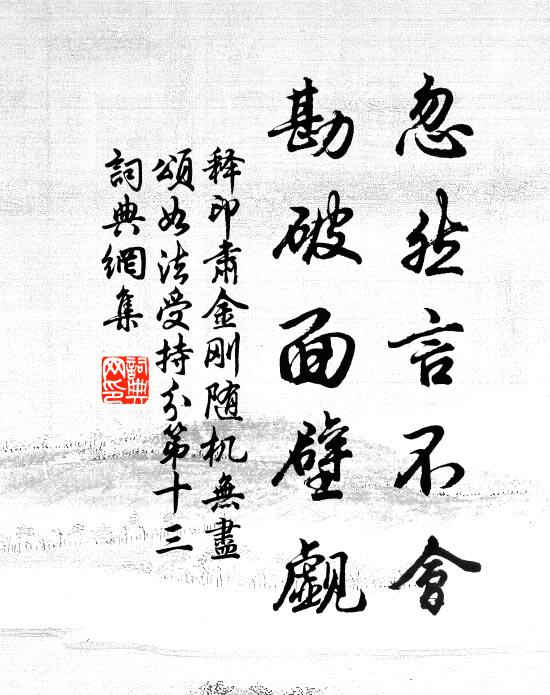 忽然言不會
勘破面壁觑
释印肃金刚随机無盡
頌如法受持分第十三
詞典網集
詞典
网印